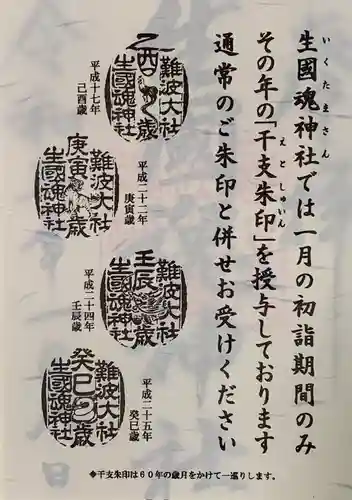 生國魂神社では一月の初詣期間のみ
いくたまさん
その年の「干支朱印」を授与しております
えとしゅいん
通常のご朱印と併せお受けください
乙酉歳
難波大社
生國魂神社
平成十七年
己酉歳
庚寅歳
難波大社
生國魂神社
平成二十二年
庚寅歳
壬辰歳
難波大社
生國魂神社
平成二十四年
壬辰歳
癸巳歳
難波大社
生國魂神社
平成二十五年
癸巳歳
◆干支朱印は60年の歳月をかけて一巡りします。